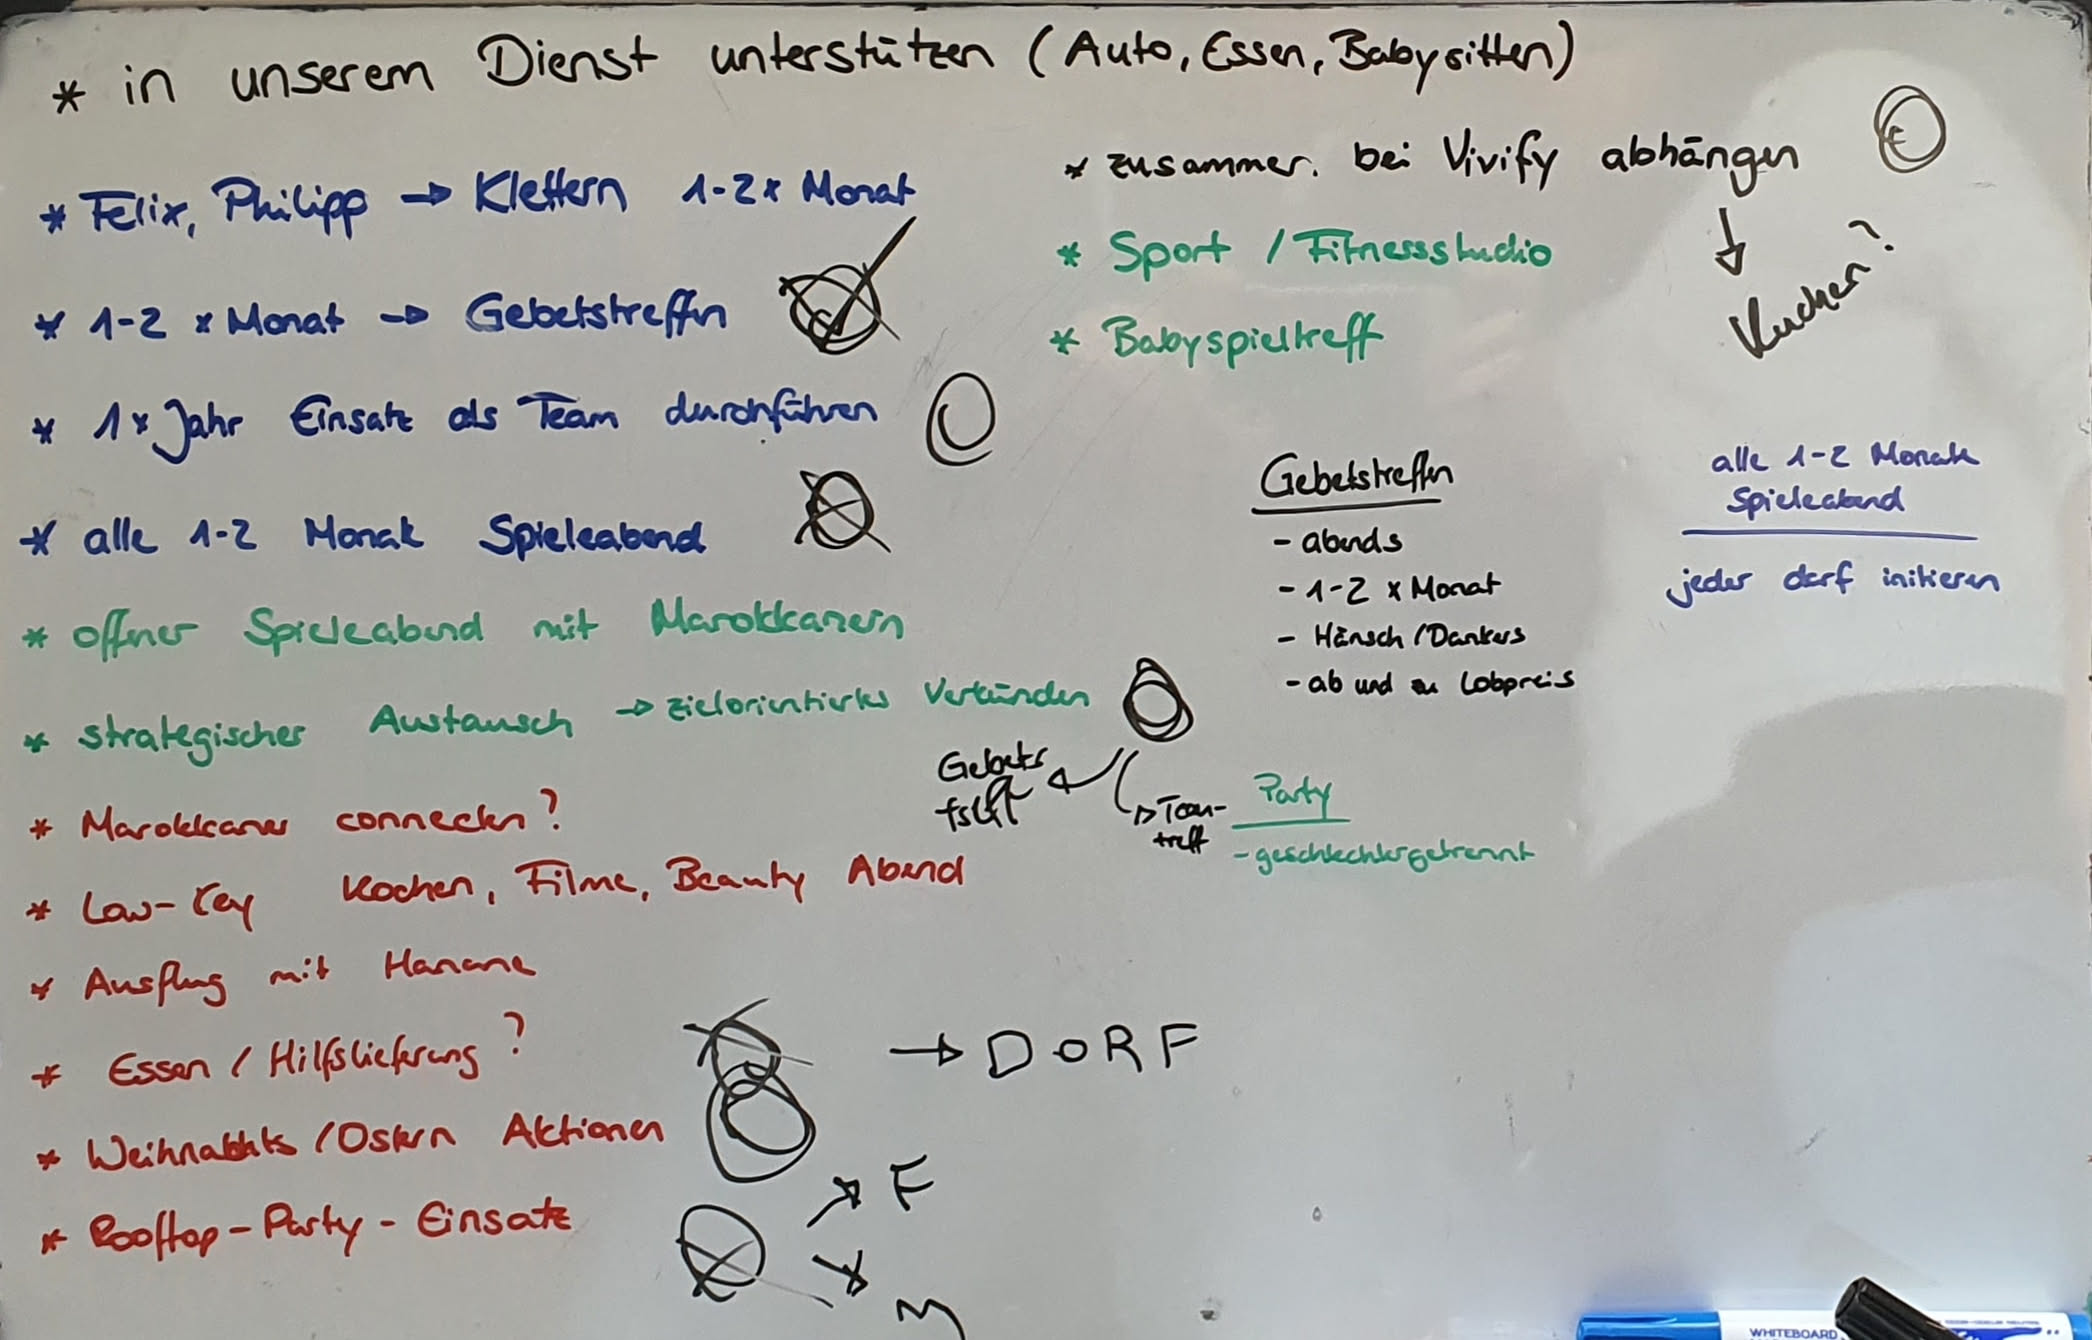 * in unserem Dienst unterstützen (Auto, Essen, Babysitten)
* Felix, Philipp → Klettern 1-2x Monat
* 1-2 x Monat → Gebetstreffen
* 1x Jahr Einsatz als Team durchführen
* alle 1-2 Monate Spieleabend
* offner Spieleabend mit Marokkanern
* strategischer Austausch → zielorientiertes Verkünden
Gebets
Team-
treff
* Marokkaner connecten?
* Low-Key Kochen, Filme, Beauty Abend
* Ausflug mit Hanane
* Essen / Hilfslieferung?
→ DORF
* Weihnachts /Ostern Aktionen
* Rooftop-Party-Einsatz
F
M
* zusammen bei Vivify abhängen
Kuchen?
* Sport / Fitnessstudio
* Babyspieltreff
Gebetstreffen
- abends
- 1-2 x Monat
- Hänsch /Dankers
- ab und zu Lobpreis
alle 1-2 Monate
Spieleabend
jeder darf initieren
Party
- geschlechtergetrennt
WHITEBOARD